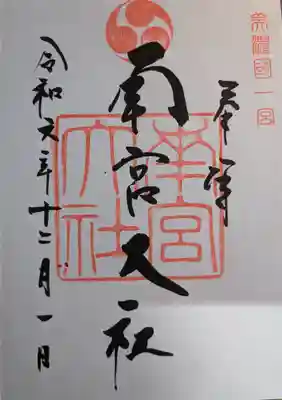 美濃國一宮
奉拝
南宮大社
南宮大社
令和六年十二月一日